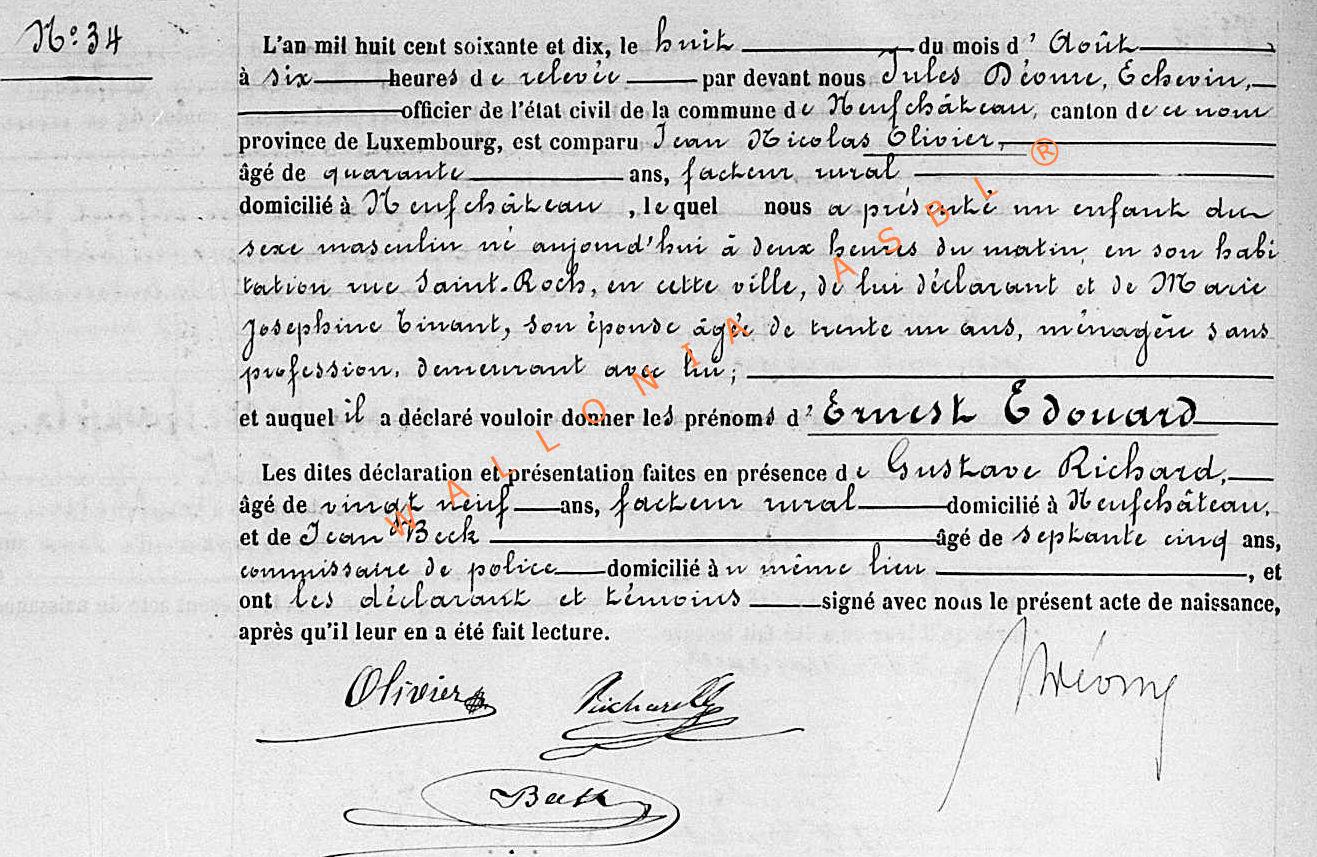 N° 34
L'an mil huit cent soixante et dix, le huit du mois d' Août
à six heures de relevée par devant nous Jules Déome, Echevin,
officier de l'état civil de la commune de Neufchâteau, canton de ce nom
province de Luxembourg, est comparu Jean Nicolas Olivier,
âgé de quarante ans, facteur rural
domicilié à Neufchâteau, lequel nous a présenté un enfant du
sexe masculin né aujourd'hui à deux heures du matin, en son habi
tation rue Saint-Roch, en cette ville, de lui déclarant et de Marie
Josephine Tinant, son épouse âgée de trente un ans, ménagère sans
profession, demeurant avec lui;
et auquel il a déclaré vouloir donner les prénoms d' Ernest Edouard
Les dites déclaration et présentation faites en présence de Gustave Richard,
âgé de vingt neuf ans, facteur rural domicilié à Neufchâteau,
et de Jean Beck âgé de septante cinq ans,
commissaire de police domicilié au même lieu, et
ont les déclarant et témoins signé avec nous le présent acte de naissance,
après qu'il leur en a été fait lecture.
Olivier Richard Déome
Beck
WALLONIA ASBL ®